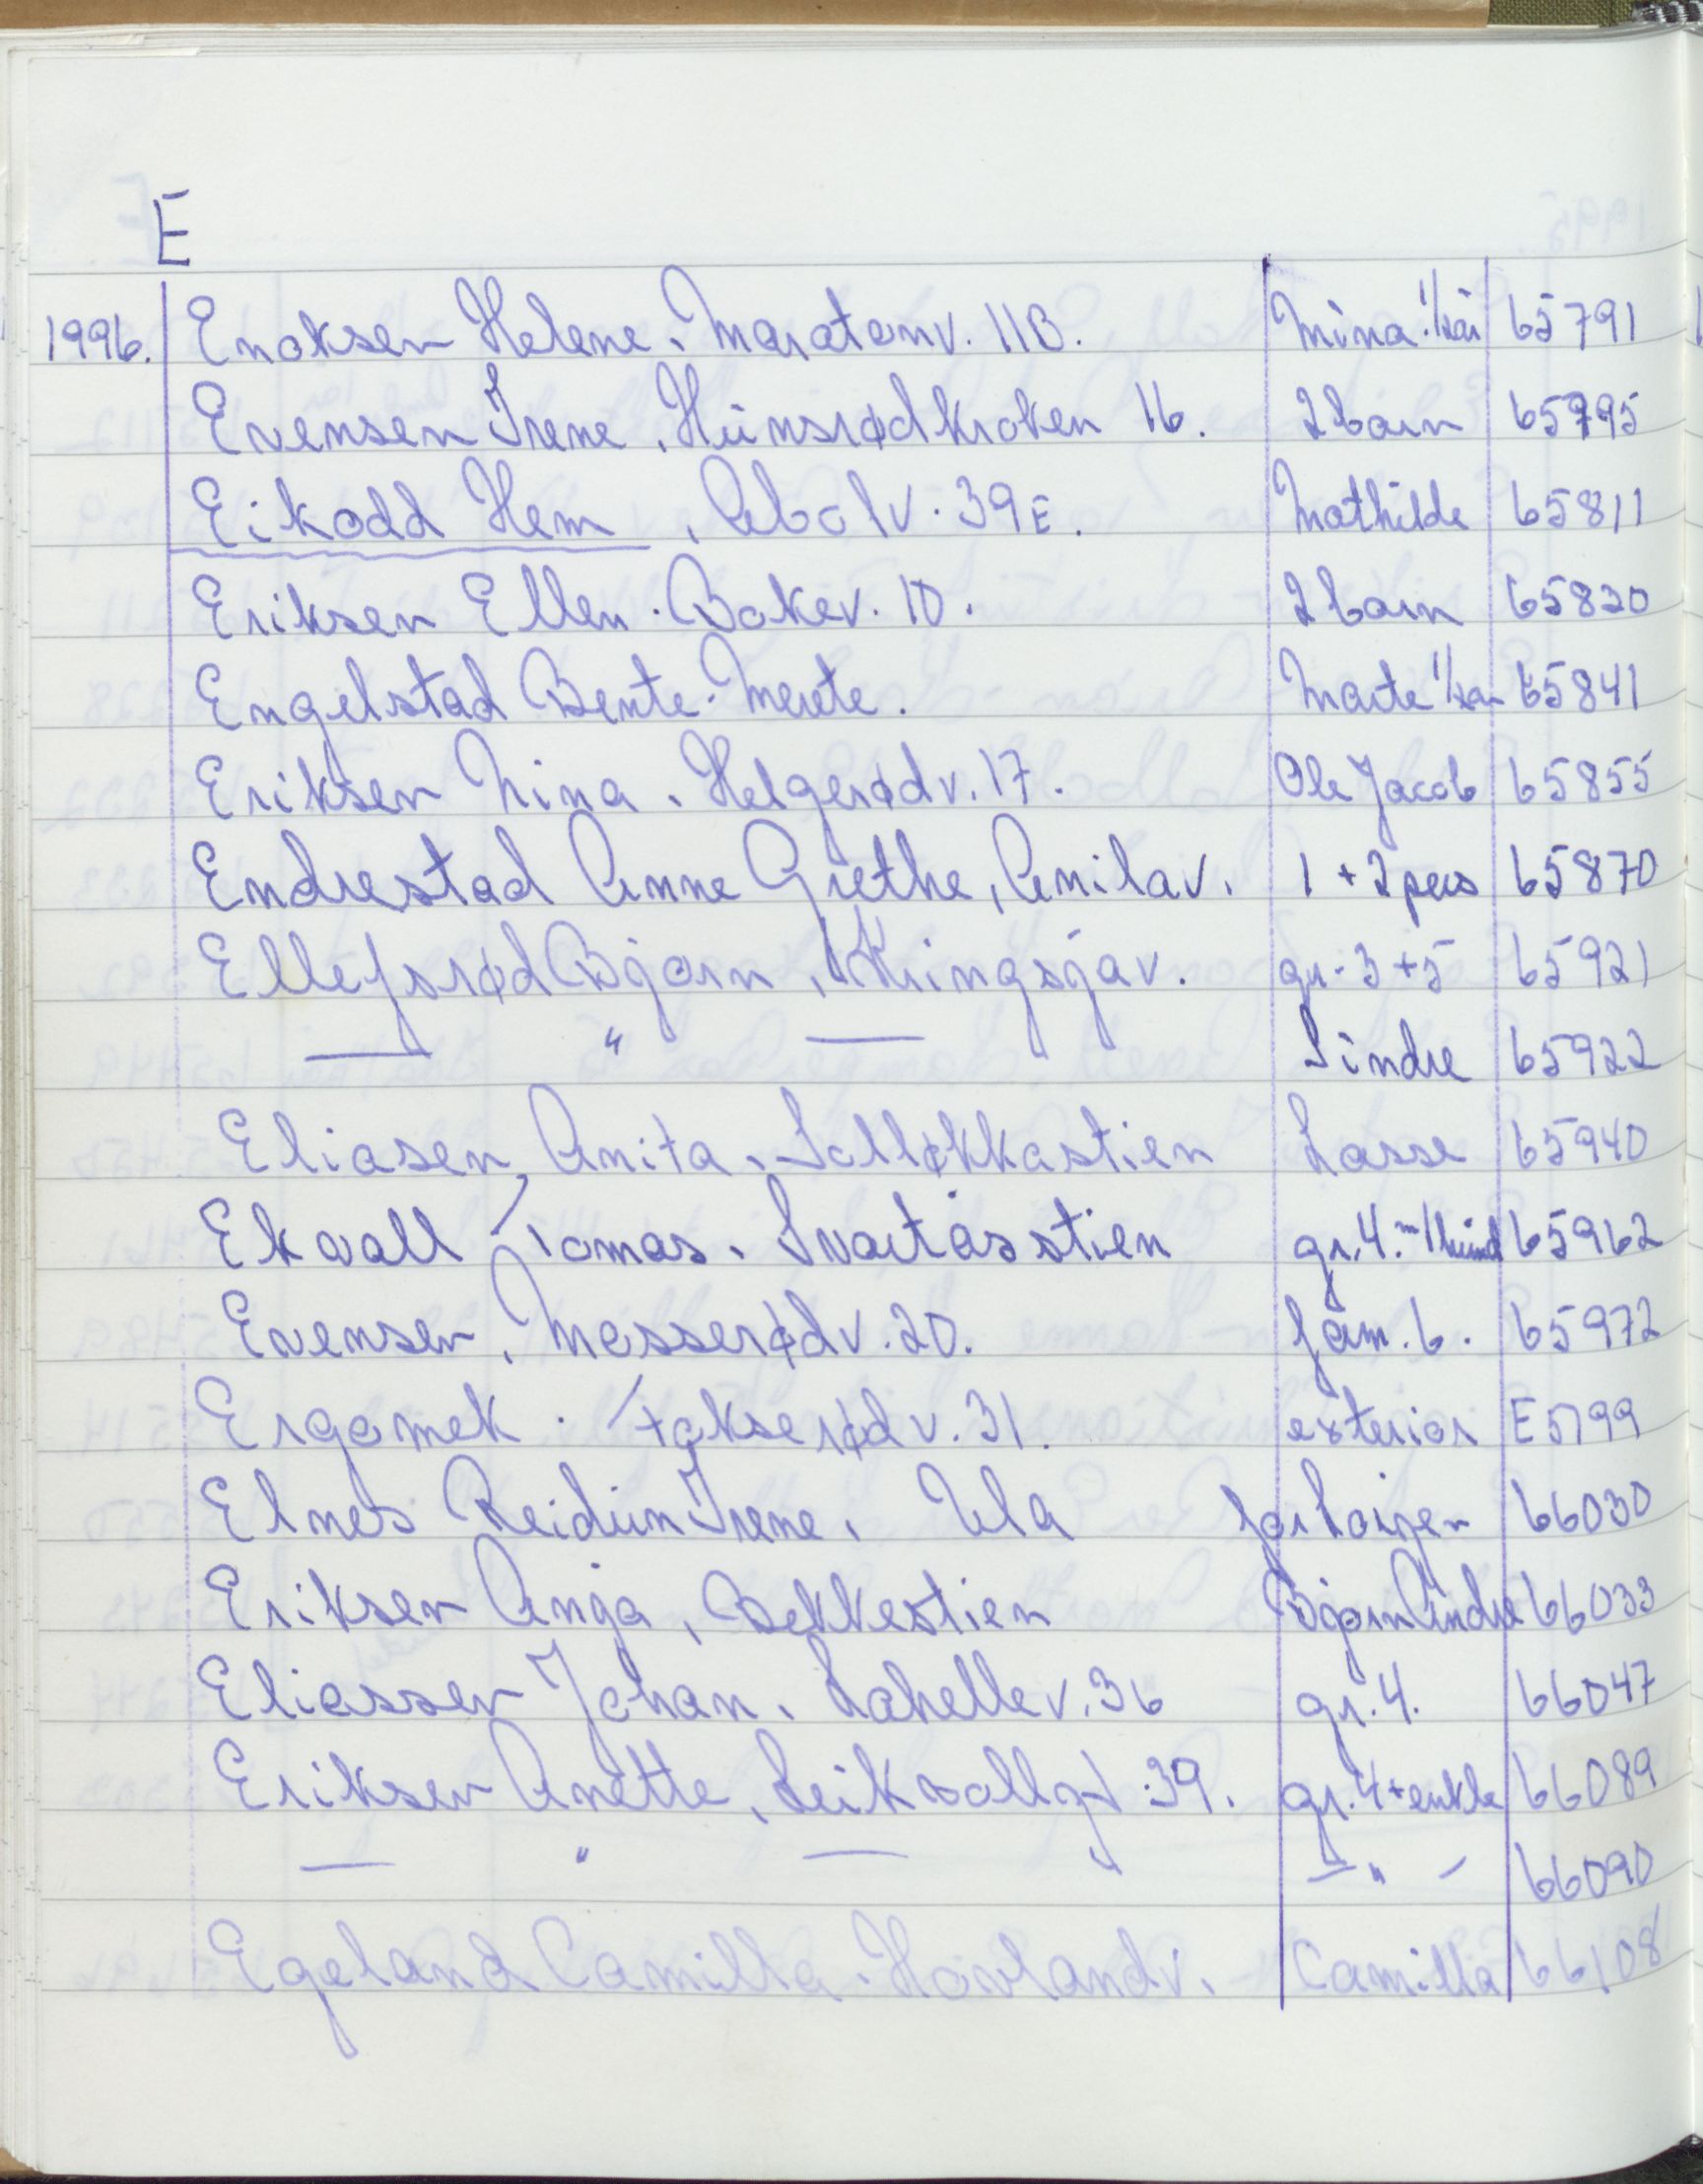 E
1996. Enoksen Helene. Maratonv. 11B. Mina 65791
Evensen Irene, Hünsrødkroken 16. 2 barn 65795
Eikodd Hem, Abolv. 39E. Mathilde 65811
Eriksen Ellen. Bøkev. 10. 2 barn 65820
Engelstad Bente-Merete. Marte 65841
Eriksen Nina. Helgerødv. 17. Ole Jacob 65855
Endrestad Anne Grethe, Anilav. 1 + 2 pers 65870
Ellefsrød Bjørn, Kringsjåv. gr. 3 + 5 65921
— " — Sindre 65922
Eliasen, Anita. Solløkkastien Lasse 65940
Ekvall Tomas. Svartåsstien gr. 4. m/hund 65962
Evensen, Mosserødv. 20. fam. 6. 65972
Ergomek. Fokserødv. 31. exterior E5199
Elnes Reidün Irene. Ula 66030
Eriksen Anja, Bekkestien Bjørn Andre 66033
Eliassen Johan. Lahellev. 36 gr. 4. 66047
Eriksen Anette, Leikvollgt. 39. gr. 4 + enkle 66089
— " — — " — 66090
Egeland Camilla. Hovlandv. Camilla 66108